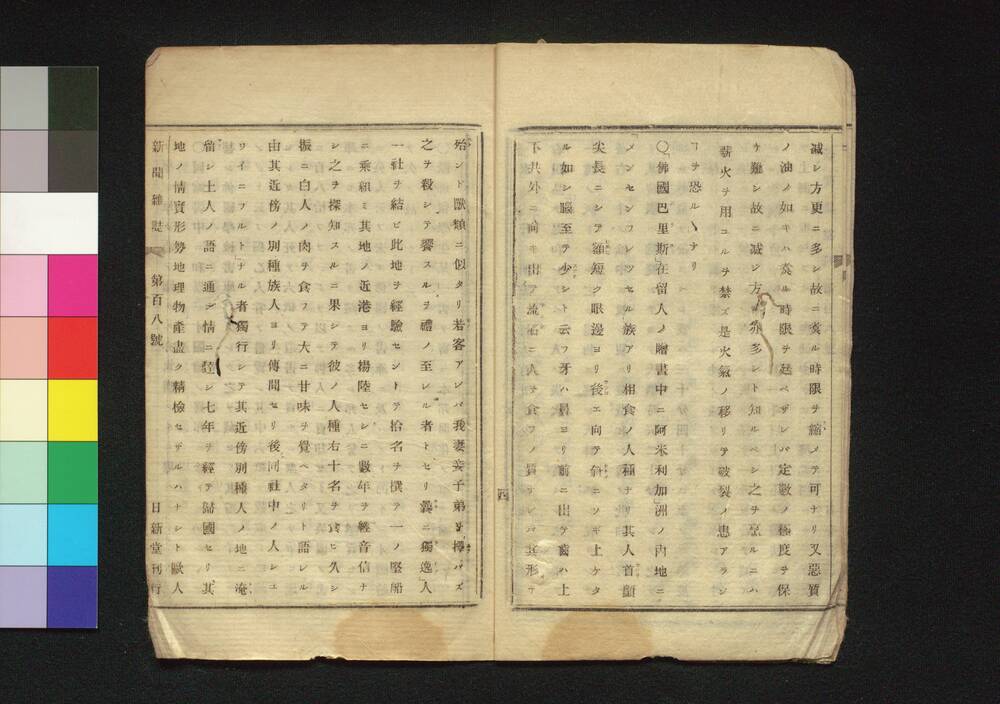 減シ方更ニ多シ故ニ煑ル時限ヲ縮メテ可ナリ又惡質
ノ油ノ如キハ煑ル時限ヲ延ベザレバ定數ノ極度ヲ保
チ難シ故ニ減シ方モ亦多シト知ルベシ之ヲ烹ルニハ
薪火ヲ用ユルヲ禁ズ是火氣ノ移リテ破裂ノ患アラン
ヿヲ恐ルヽナリ
〇佛國巴里斯在留人ノ贈書中ニ阿米利加洲ノ内地ニ
メンセンフレツセル族アリ相食ノ人種ナリ其人首顱
尖長ニシテ額短ク眼邊ヨリ後エ向テ斜ニソギ上ケタ
ル如シ腦至テ少シト云フ牙ハ唇ヨリ前ニ出テ齒ハ上
下共外ニ向キ出テ流石ニ人ヲ食フノ質アレバ其形チ
四
殆ント獸類ニ似タリ若客アレバ我妻妾子弟ヲ擇バズ
之ヲ殺シテ饗スルヲ禮ノ至レル者トセリ曩ニ獨逸人
一社ヲ結ビ此地ヲ經驗セントテ拾名ヲ撰テ一ノ堅船
ニ乘組ミ其地ノ近港ヨリ揚陸セシニ數年ヲ經音信ナ
シ之ヲ探知スルニ果シテ彼ノ人種右十名ヲ食ヒ久シ
振ニ白人ノ肉ヲ食フテ大ニ甘味ヲ覺ヘタリト語レル
由其近傍ノ別種族人ヨリ傳聞セリ後同社中ノ人シエ
ワイニフルトナル者獨行シテ其近傍別種人ノ地ニ淹
留シ土人ノ語ニ通シ情ニ達シ七年ヲ經テ歸國セリ其
地ノ情實形勢地理物產盡ク精檢セザルハナシト歐人
新聞雜誌 第百八號 日新堂刊行